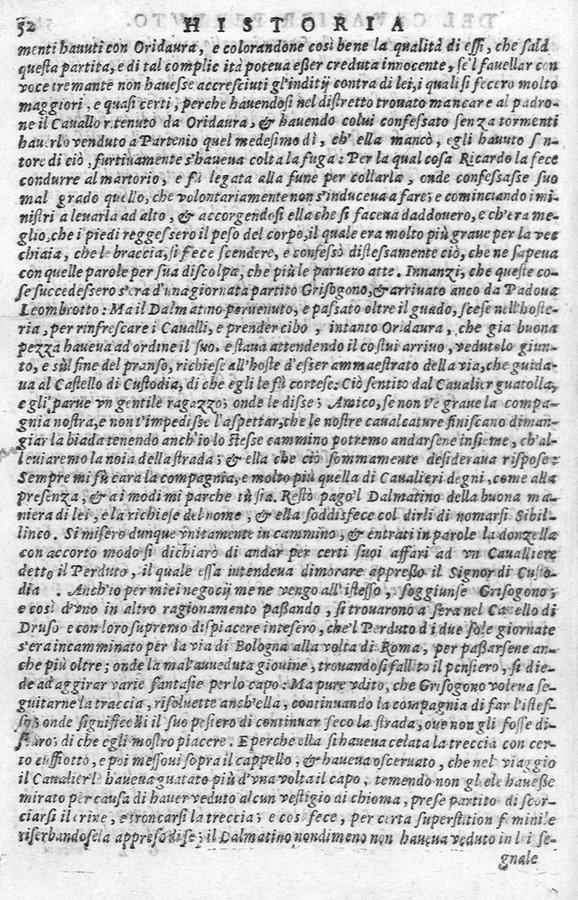 52 HISTORIA
menti hauuti con Oridaura, e colorandone così bene la qualità di essi, che sald
questa partita, e di tal complicità poteua eßer creduta innocente, se'l fauellar con
voce tremante non hauesse accresciuti gl'inditij contra di lei, i quali si fecero molto
maggiori. e quasi certi, perche hauendosi nel distretto trouato mancare al padro-
ne il Cauallo r.tenuto da Oridaura, & hauendo colui confessato senza tormenti
hauerlo venduto a Partenio quel medesimo dì, ch'ella mancò, egli hauuto sen-
tore di ciò, furtiuamente s'haueua colta la fuga: Per la qual cosa Ricardo la fece
condurre al martorio, e fù legata alla fune per collarla, onde confessasse suo
mal grado quello, che volontariamente non s'induceua a fare; e cominciando i mi-
nistri a leuarla ad alto, & accorgendosi ella che si faceua daddouero, e ch'era me-
glio, che i piedi reggessero il peso del corpo, il quale era molto più graue per la vec
chiaia, che le braccia, si fece scendere, e confessò distessamente ciò, che ne sapeua
con quelle parole per sua discolpa, che più le paruero atte. Innanzi, che queste co-
se succedessero s'era d'una giornata partito Grisogono, & arriuato anco da Padoua
Leombrotto: Ma il Dalmatino peruenuto, e passato oltre il guado, scese nell'hoste-
ria, per rinfrescare i Caualli, e prender cibo, intanto Oridaura, che già buona
pezza haueua ad ordine il suo. e staua attendendo il costui arriuo, vedutolo giun-
to, e sùl fine del pranso, richiese all'hoste d'esser ammaestrato della via, che guida-
ua al Castello di Custodia, di che egli le fù cortese: Ciò sentito dal Caualier guatolla,
e gli parue vn gentile ragazzo; onde le disse; Amico, se non t'è graue la compa-
gnia nostra, e non t'impedisse l'aspettar, che le nostre caualcature finiscano di man-
giar la biada tenendo anch'io lo stesse cammino potremo andarsene insieme, ch'al-
leuiaremo la noia della strada; & ella che ciò sommamente desideraua rispose:
Sempre mi fù cara la compagnia, e molto più quella di Caualieri degni, come alla
presenza, & a i modi mi parche tù sia. Restò pago'l Dalmatino della buona ma-
niera di lei, e la richiese del nome, & ella soddisfece col dirli di nomarsi Sibil-
linco. Si misero dunque vnitamente in cammino, & entrati in parole la donzella
con accorto modo si dichiarò di andar per certi suoi affari ad vn Caualliere
detto il Perduto, il quale essa intendeua dimorare appreßo il Signor di Custo-
dia. Anch'io per miei negocij me ne vengo all'istesso, soggiunse Grisogono;
e così d'vno in altro ragionamento paßando, si trouarono a sera nel Castello di
Druso e con loro supremo dispiacere intesero, che'l Perduto di due sole giornate
s'era incamminato per la via di Bologna alla volta di Roma, per paßarsene an-
che più oltre; onde la mal'aueduta giouine, trouandosi fallito il pensiero, si die-
de ad aggirar varie fantasie per lo capo: Ma pure vdito, che Grisogono voleua se-
guitarne la traccia, risoluette anch'ella, continuando la compagnia di far l'istes-
so; onde significolli il suo pesiero di continuar seco la strada, oue non gli fosse di-
scaro; di che egli mostrò piacere. E perche ella si haueua celata la treccia con cer
to cuffiotto, e poi messoui sopra il cappello, & haueua osceruato, che nel viaggio
il Caualier l'haueua guatato più d'vna volta il capo, temendo non gl ele haueße
mirato per causa di hauer veduto alcun vestigio di chioma, prese partito di scor-
ciarsi il crine, e troncarsi la treccia; e così fece, per certa superstition feminile
riserbandosela appreso di se; il Dalmatino nondimeno non haueua veduto in lei se-
gnale